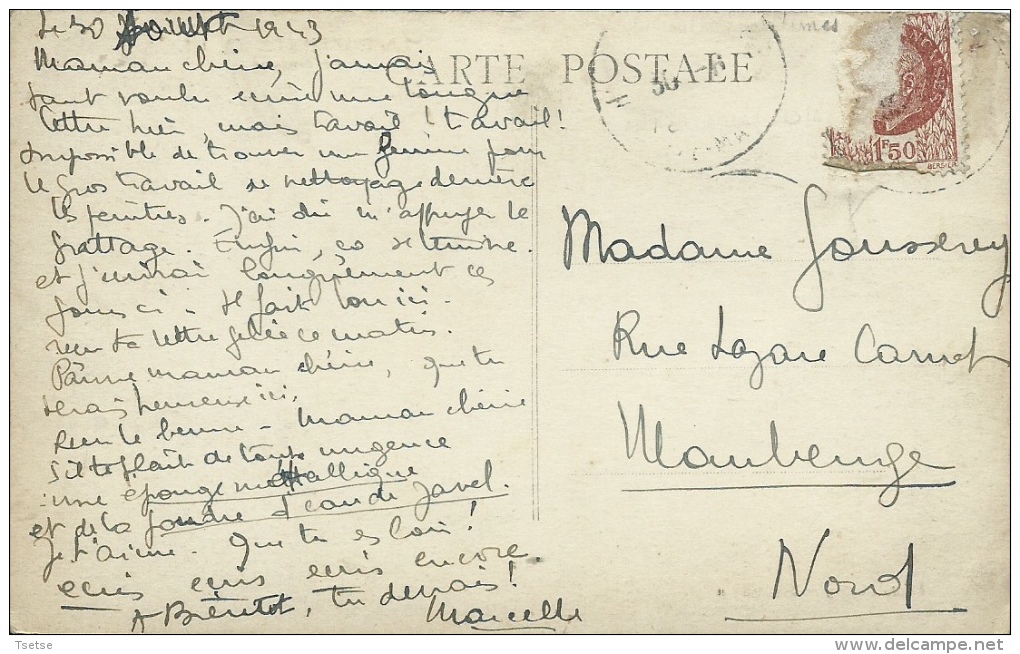 Le 30 Juillet 1943
Maman chérie, j'aurais
tant voulu écrire une longue
lettre hier, mais travail ! travail !
Impossible de trouver une femme pour
le gros travail de nettoyage derrière
les peintres. J'ai dû m'appuyer le
grattage. Enfin, ça se termine.
et j'écrirai longuement ces
jours ci. Il fait bon ici.
reçu ta lettre ce matin.
Pauvre maman chérie, que tu
serais heureuse ici.
Reçu le beurre - Maman chérie
s'il te plaît de toute urgence
une éponge métallique
et de la poudre d'eau de Javel.
Je t'aime. Que tu es loin !
écris écris écris encore
A Bientôt, tu devrais !
Marcelle
CARTE POSTALE
30
1F50
BERSIER
Madame
Rue Lazare Carnot
Maubeuge
Nord
Tsetse
www.delcampe.net